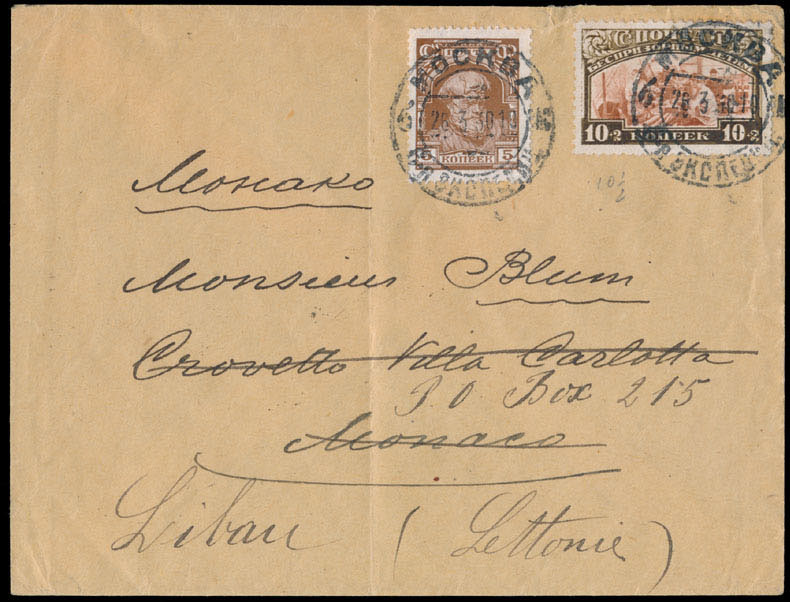 МОСКВА
26.3.30.19
ЭКСПЕД.
ПОЧТА
5 КОПЕЕК 5
МОСКВА
26.3.30.19
ЭКСПЕД.
ПОЧТА СССР
БЕСПРИЗОРНЫМ ДЕТЯМ
10+2 КОПЕЕК 10+2
10½
Монако
Monsieur Blum
Crovetto Villa Carlotta
P O Box 215
Monaco
Libau (Lettonie)